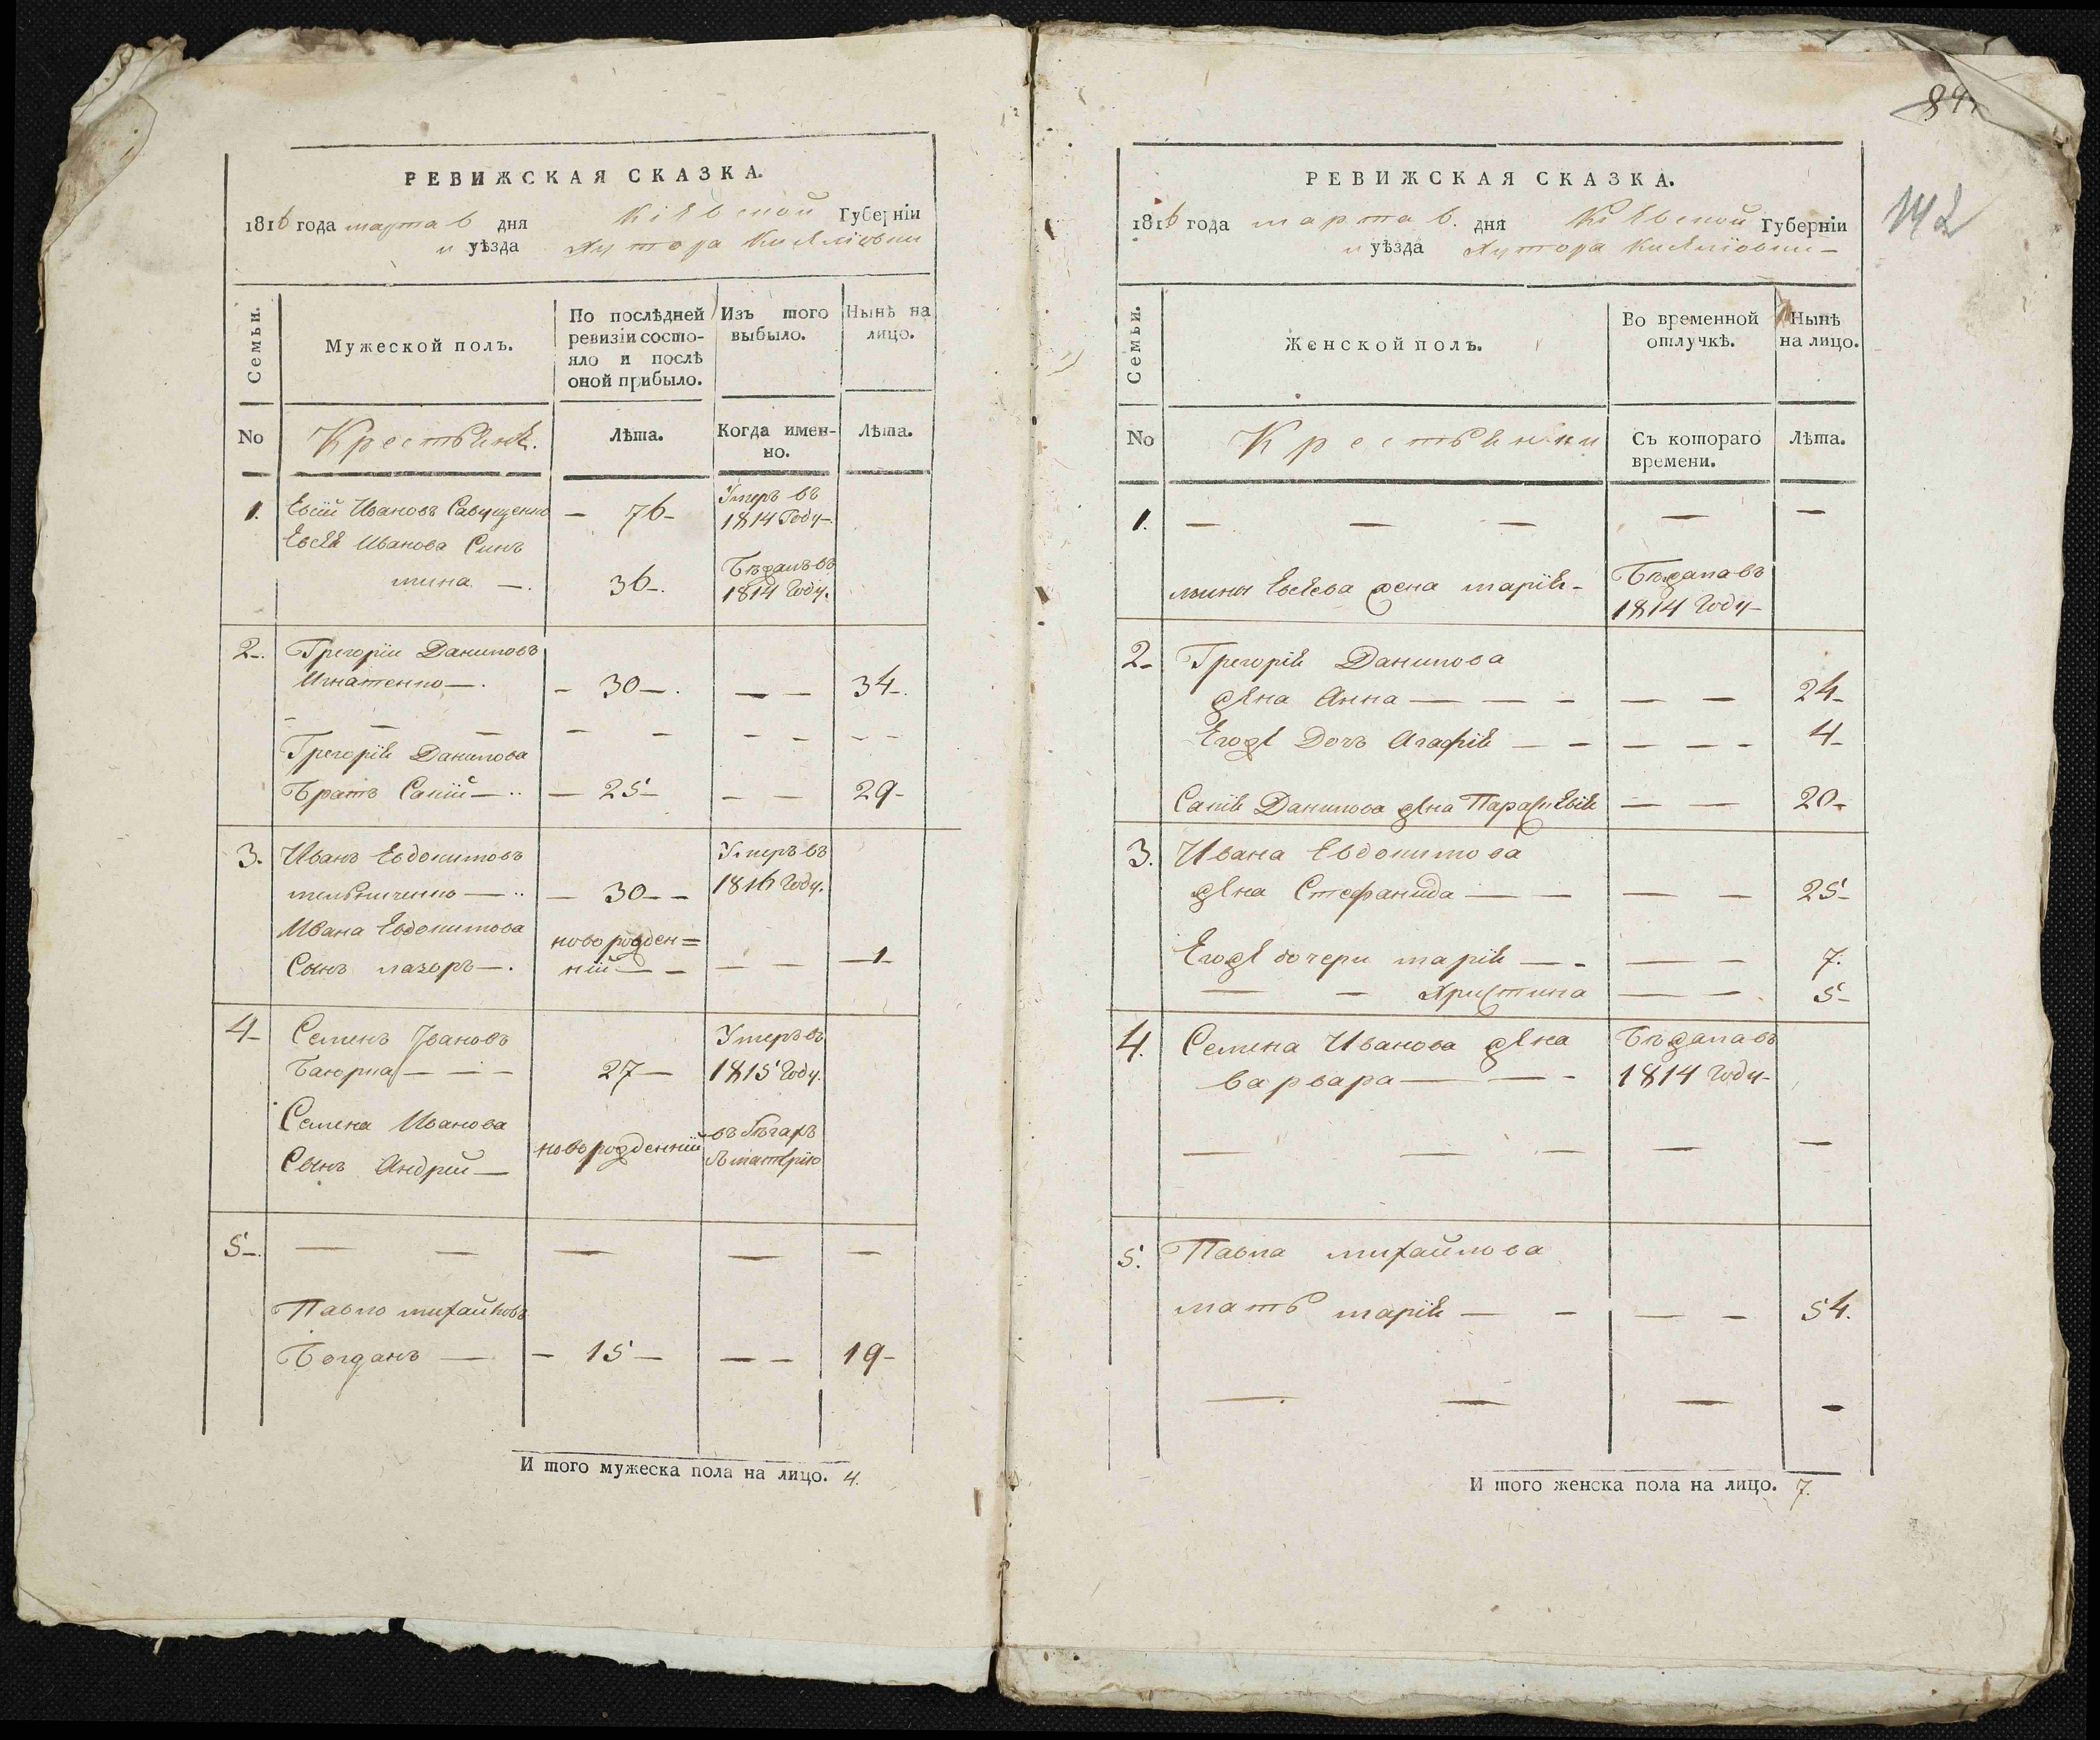 РЕВИЖСКАЯ СКАЗКА.
1816 года марта 6 дня Кіевской Губерніи
и уѣзда Хутора
Семьи.
Мужеской полъ.
По послѣдней ревизіи состо-
яло и послѣ
оной прибыло.
Изъ того
выбыло.
Нынѣ на
лицо.
No
Крестьяне.
Лѣта.
Когда имен-
но.
Лѣта.
1. Ивановъ Савущенко — 76 — Умеръ въ
1814 Году —
Евсѣя Иванова Синъ
мина —. 36 —. Бѣжалъ въ
1814 Году.
2 —. Грегорій Даниловъ
Игнатенко —. — 30 —. — — 34 —.
— — — — — — — — —
Грегорія Данилова
Братъ — .. — 25 — — — 29 —
3. Иванъ Евдокимовъ
мельниченко — .. — 30 — — Умеръ въ
1816 Году.
Ивана Евдокимова
Сынъ лазоръ —. новорожден=
ній — — — — — 1 —
4 — Семенъ Івановъ
— — — 27 — Умеръ въ
1815 Году.
Семена Иванова
Сынъ Андрей — новорожденній въ
5 —. — — — — —
Павло михайловъ
Богданъ — — 15 — — — 19 —
И того мужеска пола на лицо. 4.
842
142
РЕВИЖСКАЯ СКАЗКА.
1816 года марта 6. дня Кіевской Губерніи
и уѣзда Хутора
Семьи.
Женской полъ.
Во временной
отлучкѣ.
Нынѣ
на лицо.
No
Крестьянки
Съ котораго
времени.
Лѣта.
1. — — — — —
мины Евсѣева жена марія — Бѣжала въ
1814 Году —
2 — Грегорія Данилова
жена Анна — — — — — 24 —
Егоже Дочъ Агафія — — — — — 4 —
Данилова жена Параскѣвія — — 20 —
3. Ивана Евдокимова
жена Стефанида — — — — 25 —
Егоже дочери марія — — — — 7.
— — Христина — — 5 —
4. Семена Иванова жена Бѣжала въ
варвара — — — 1814 Году —
— — — — —
5. Павла михайлова
мать марія — — — — 54.
— — — —
И того женска пола на лицо. 7.